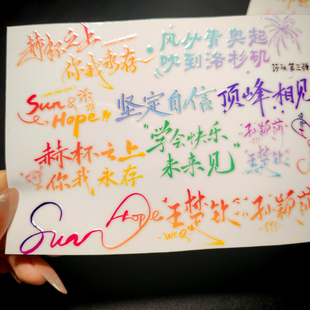 赫杯之上
你我永存
风从青奥起
吹到洛杉矶
莎头第三弹
Sun &
Hope!!
坚定自信
顶峰相见
赫杯之上
你我永存
"学会快乐
未来见"
孙颖莎
王楚钦
Sun
Hope
"王楚钦"
wcq
"孙颖莎"